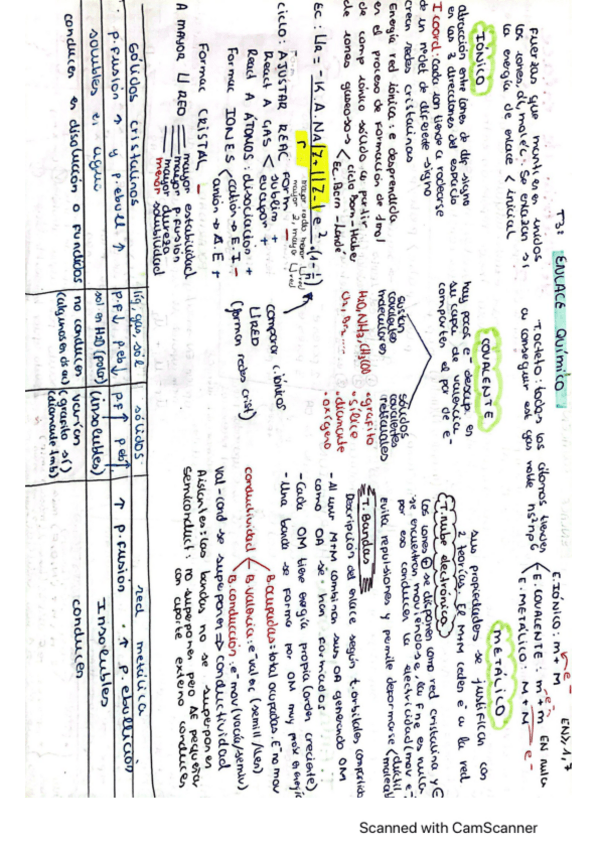 T3: ENLACE QUÍMICO
fuerzas que mantienen unidos
los iones di moléc. Se enlazan si
la energía de enlace < inicial
T. octeto: todos los átomos tienden
a conseguir est gas noble ns²np6
E. IÓNICO: m + M
E. COVALENTE: m + m EN nula
E. METÁLICO: M + M
IÓNICO
atracción entre iones de dif signo
en las 3 direcciones del espacio
I coord: cada ion tiende a rodearse
de un nº det de diferente signo
crean redes cristalinas
Energía red iónica: e desprendida
en el proceso de formación de 1mol
de comp iónico sólido a partir
de iones gaseosos
ciclo Born-Haber
Ec. Born-Landé
Ec: Ur = -K.A.NA |Z+||Z-| e² (1-1/n)
r
mayor radio menor Ured
mayor Z, mayor Ured
ciclo: AJUSTAR REAC form -
React A GAS
sublim +
evapor +
React A ÁTOMOS: disociación +
Formar IONES
catión → E.I -
anión → A.E +
Formar CRISTAL -
comparar c. iónicos
URED
(forman redes crist)
A MAYOR URED
mayor estabilidad
mayor p. fusión
mayor dureza
menor solubilidad
COVALENTE
hay pocos e- desap en
su capa de valencia
comparten el par de e-
sustan
covalentes
moleculares
H2O, NH3, CH3COO
Cl2, Br2 ....
sólidos
covalentes
reticulares
-grafito
-sílice
-diamante
-oxígeno
METÁLICO
sus propiedades se justifican con
2 teorías. El M+M ceden e- a la red
T. nube electrónica
los iones + se disponen como red cristalina y
se encuentran moviéndose. la Fne es nula
por eso conducen la electricidad (mov e-)
evita repulsiones y permite deformarse
T. Bandas
Descripción del enlace según t. orbitales, compartido
- Al unir M+M combinan sus OA generando OM
como OA se han formados
- Cada OM tiene energía propia (orden creciente)
- Una banda se forma por OM muy próx energía
conductividad
B. ocupadas: total ocupadas. E no mov
B. valencia: e- valenc (semill/llen)
B. conducción: e- mov (vacía/semiv)
val-cond se superponen → conductividad
Aislantes: las bandas no se superponen
semiconduct: no superponen pero ΔE pequeña.
con aporte externo conducen
sólidos cristalinos
líq, gas, sól
sólidos
red metálica
p. fusión ↑ y p. ebull ↑
p.f ↓ peb ↓
pf ↑ peb ↑
↑ p. fusión ↑ p. ebullición
solubles en agua
sol en H2O (polar)
(insolubles)
Insolubles
conducen en disolución o fundidos
no conducen
(algunas en dis en)
varían
(grafito sí)
(diamante tmb)
conducen
Scanned with CamScanner